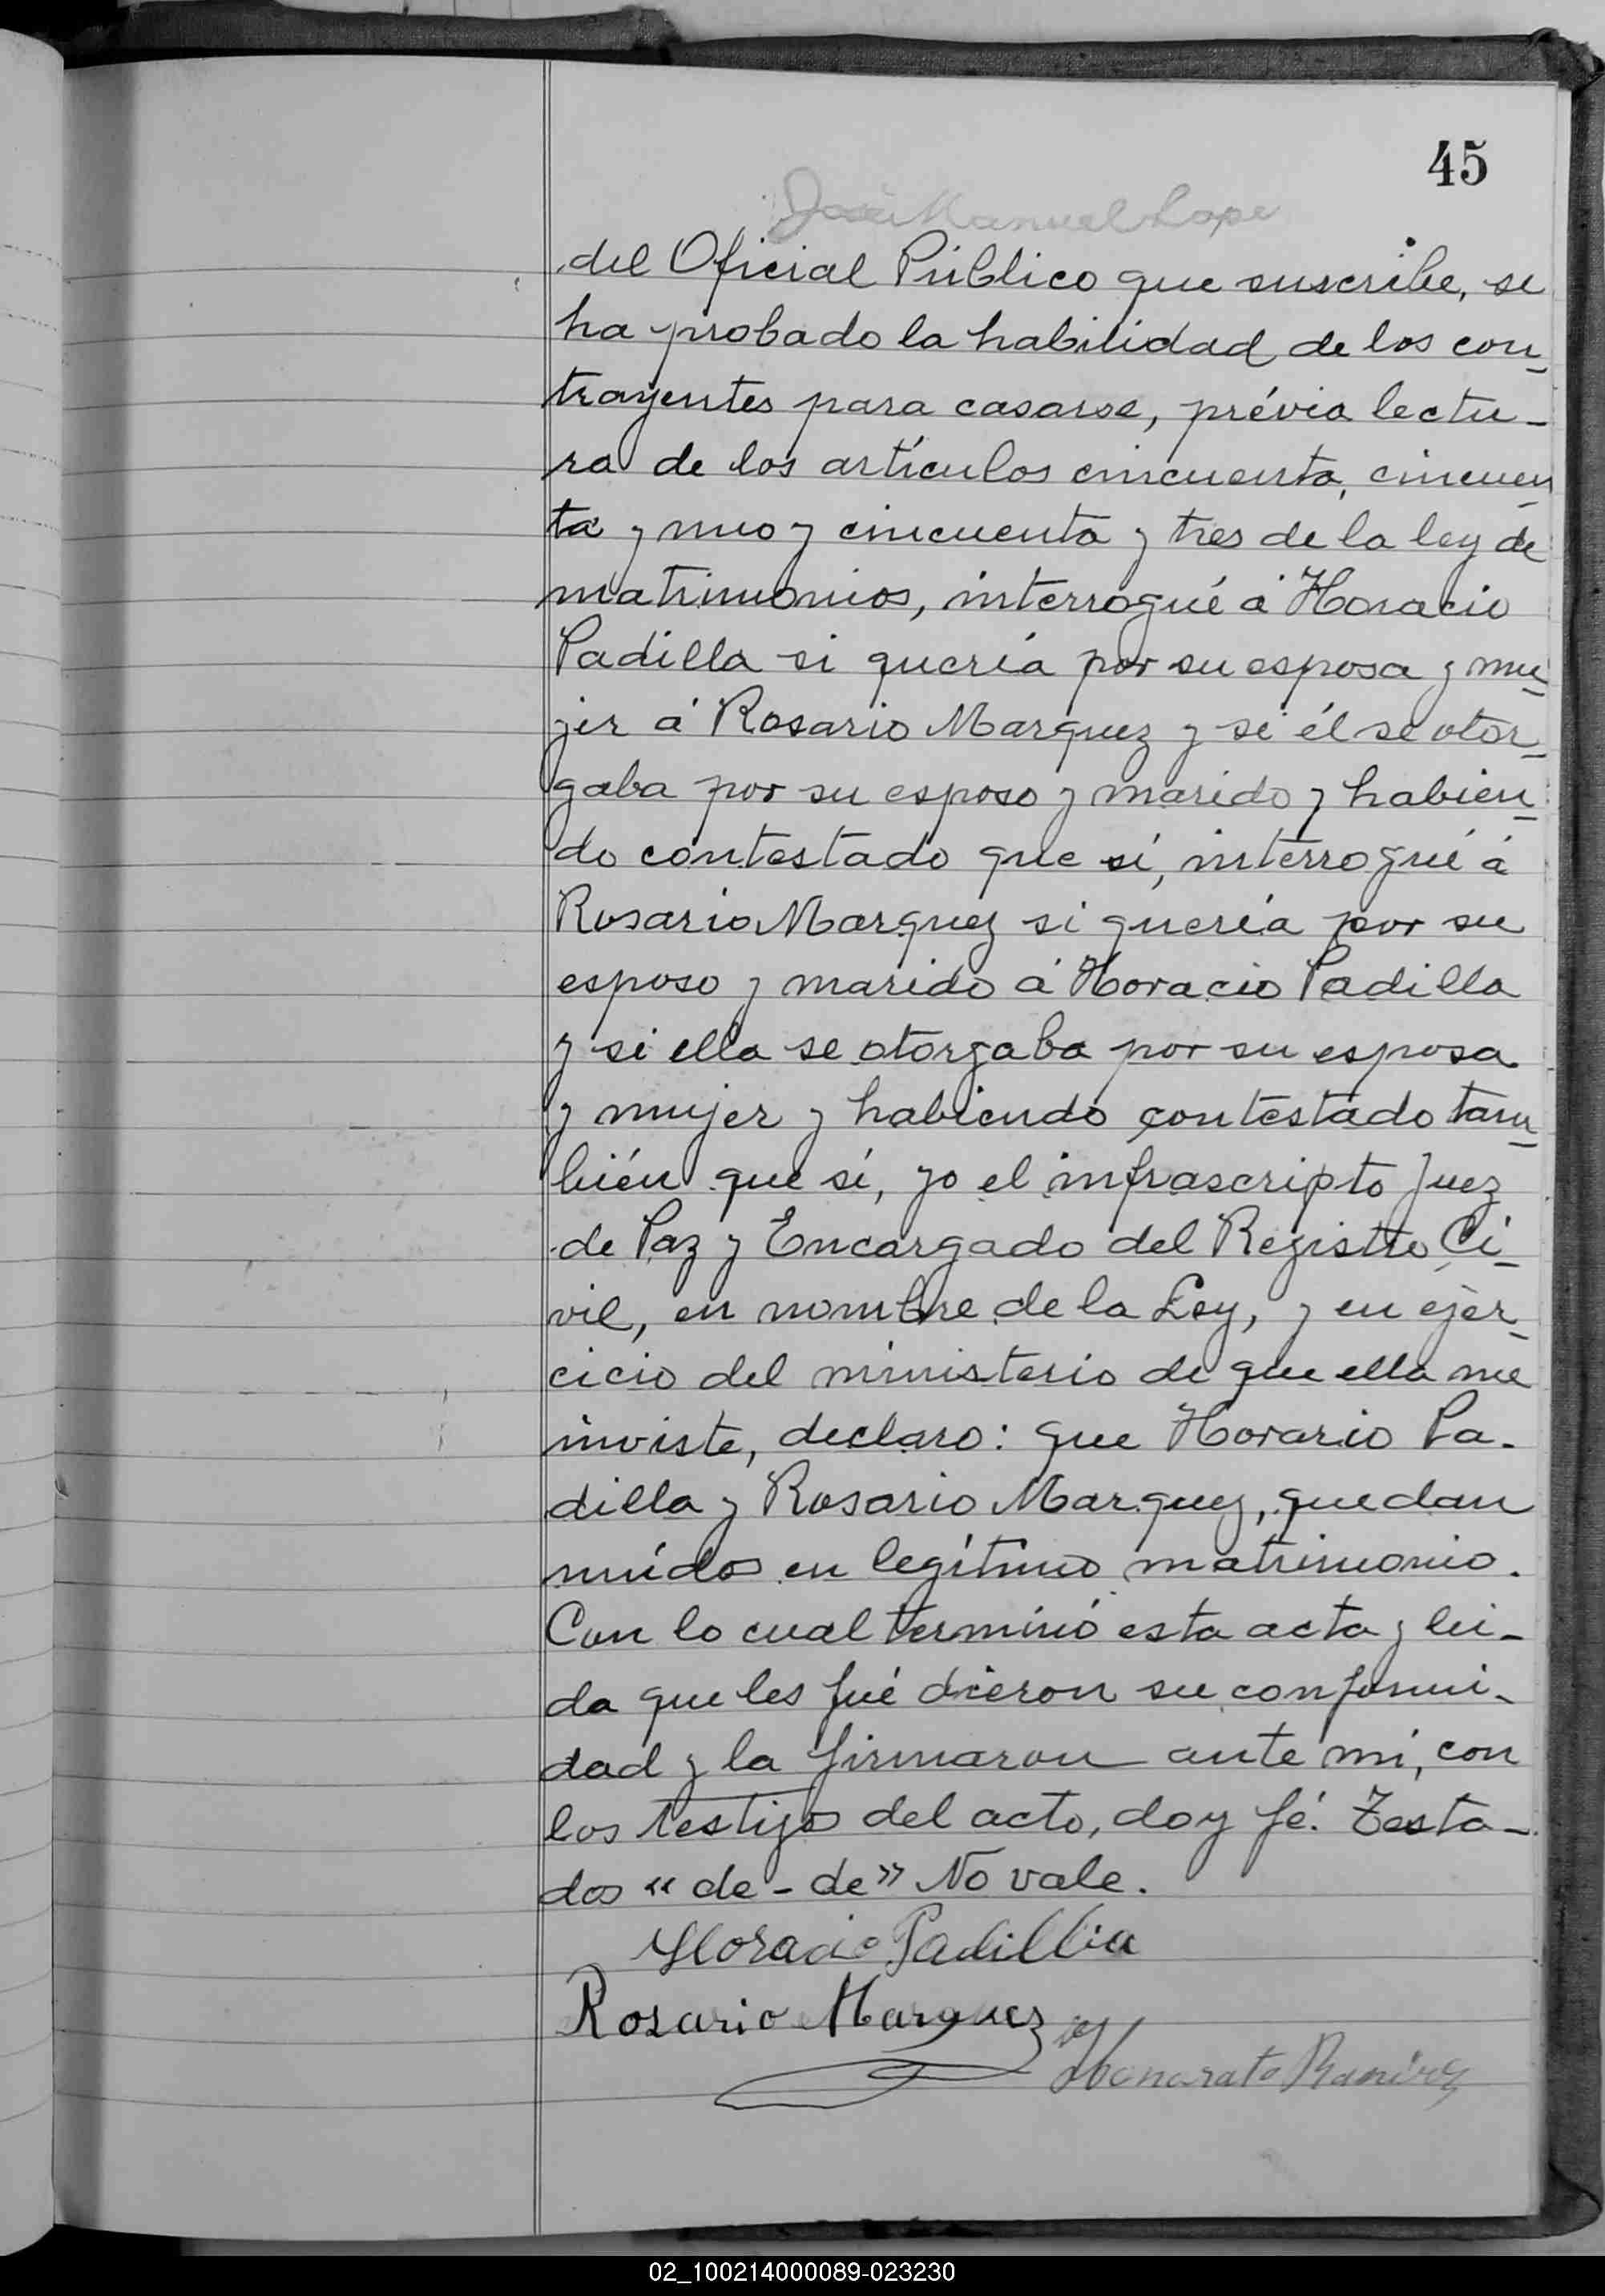 45
José Manuel Lope
del Oficial Público que suscribe, se
ha probado la habilidad de los con_
trayentes para casarse, prévia lectu_
ra de los artículos cincuenta, cincuen
ta y uno y cincuenta y tres de la ley de
matrimonios, interrogué á Horacio
Padilla si quería por su esposa y mu_
jer á Rosario Marquez y si él se otor_
gaba por su esposo y marido y habien_
do contestado que sí, interrogué á
Rosario Marquez si quería por su
esposo y marido á Horacio Padilla
y si ella se otorgaba por su esposa
y mujer y habiendo contestado tam_
bién que sí, yo el infrascripto Juez
de Paz y Encargado del Registro Ci_
vil, en nombre de la Ley, y en ejer_
cicio del ministerio de que ella me
inviste, declaro: que Horario Pa-
dilla y Rosario Marquez, quedan
unídos en legítimo matrimonio.
Con lo cual terminó esta acta y lei_
da que les fué dieron su conformi-
dad y la firmaron ante mí, con
los testigos del acto, doy fé. Testa_
dos « de - de » No vale.
Horacio Padillia
Rosario Marquez
Honorato Ramirez
02_100214000089-023230